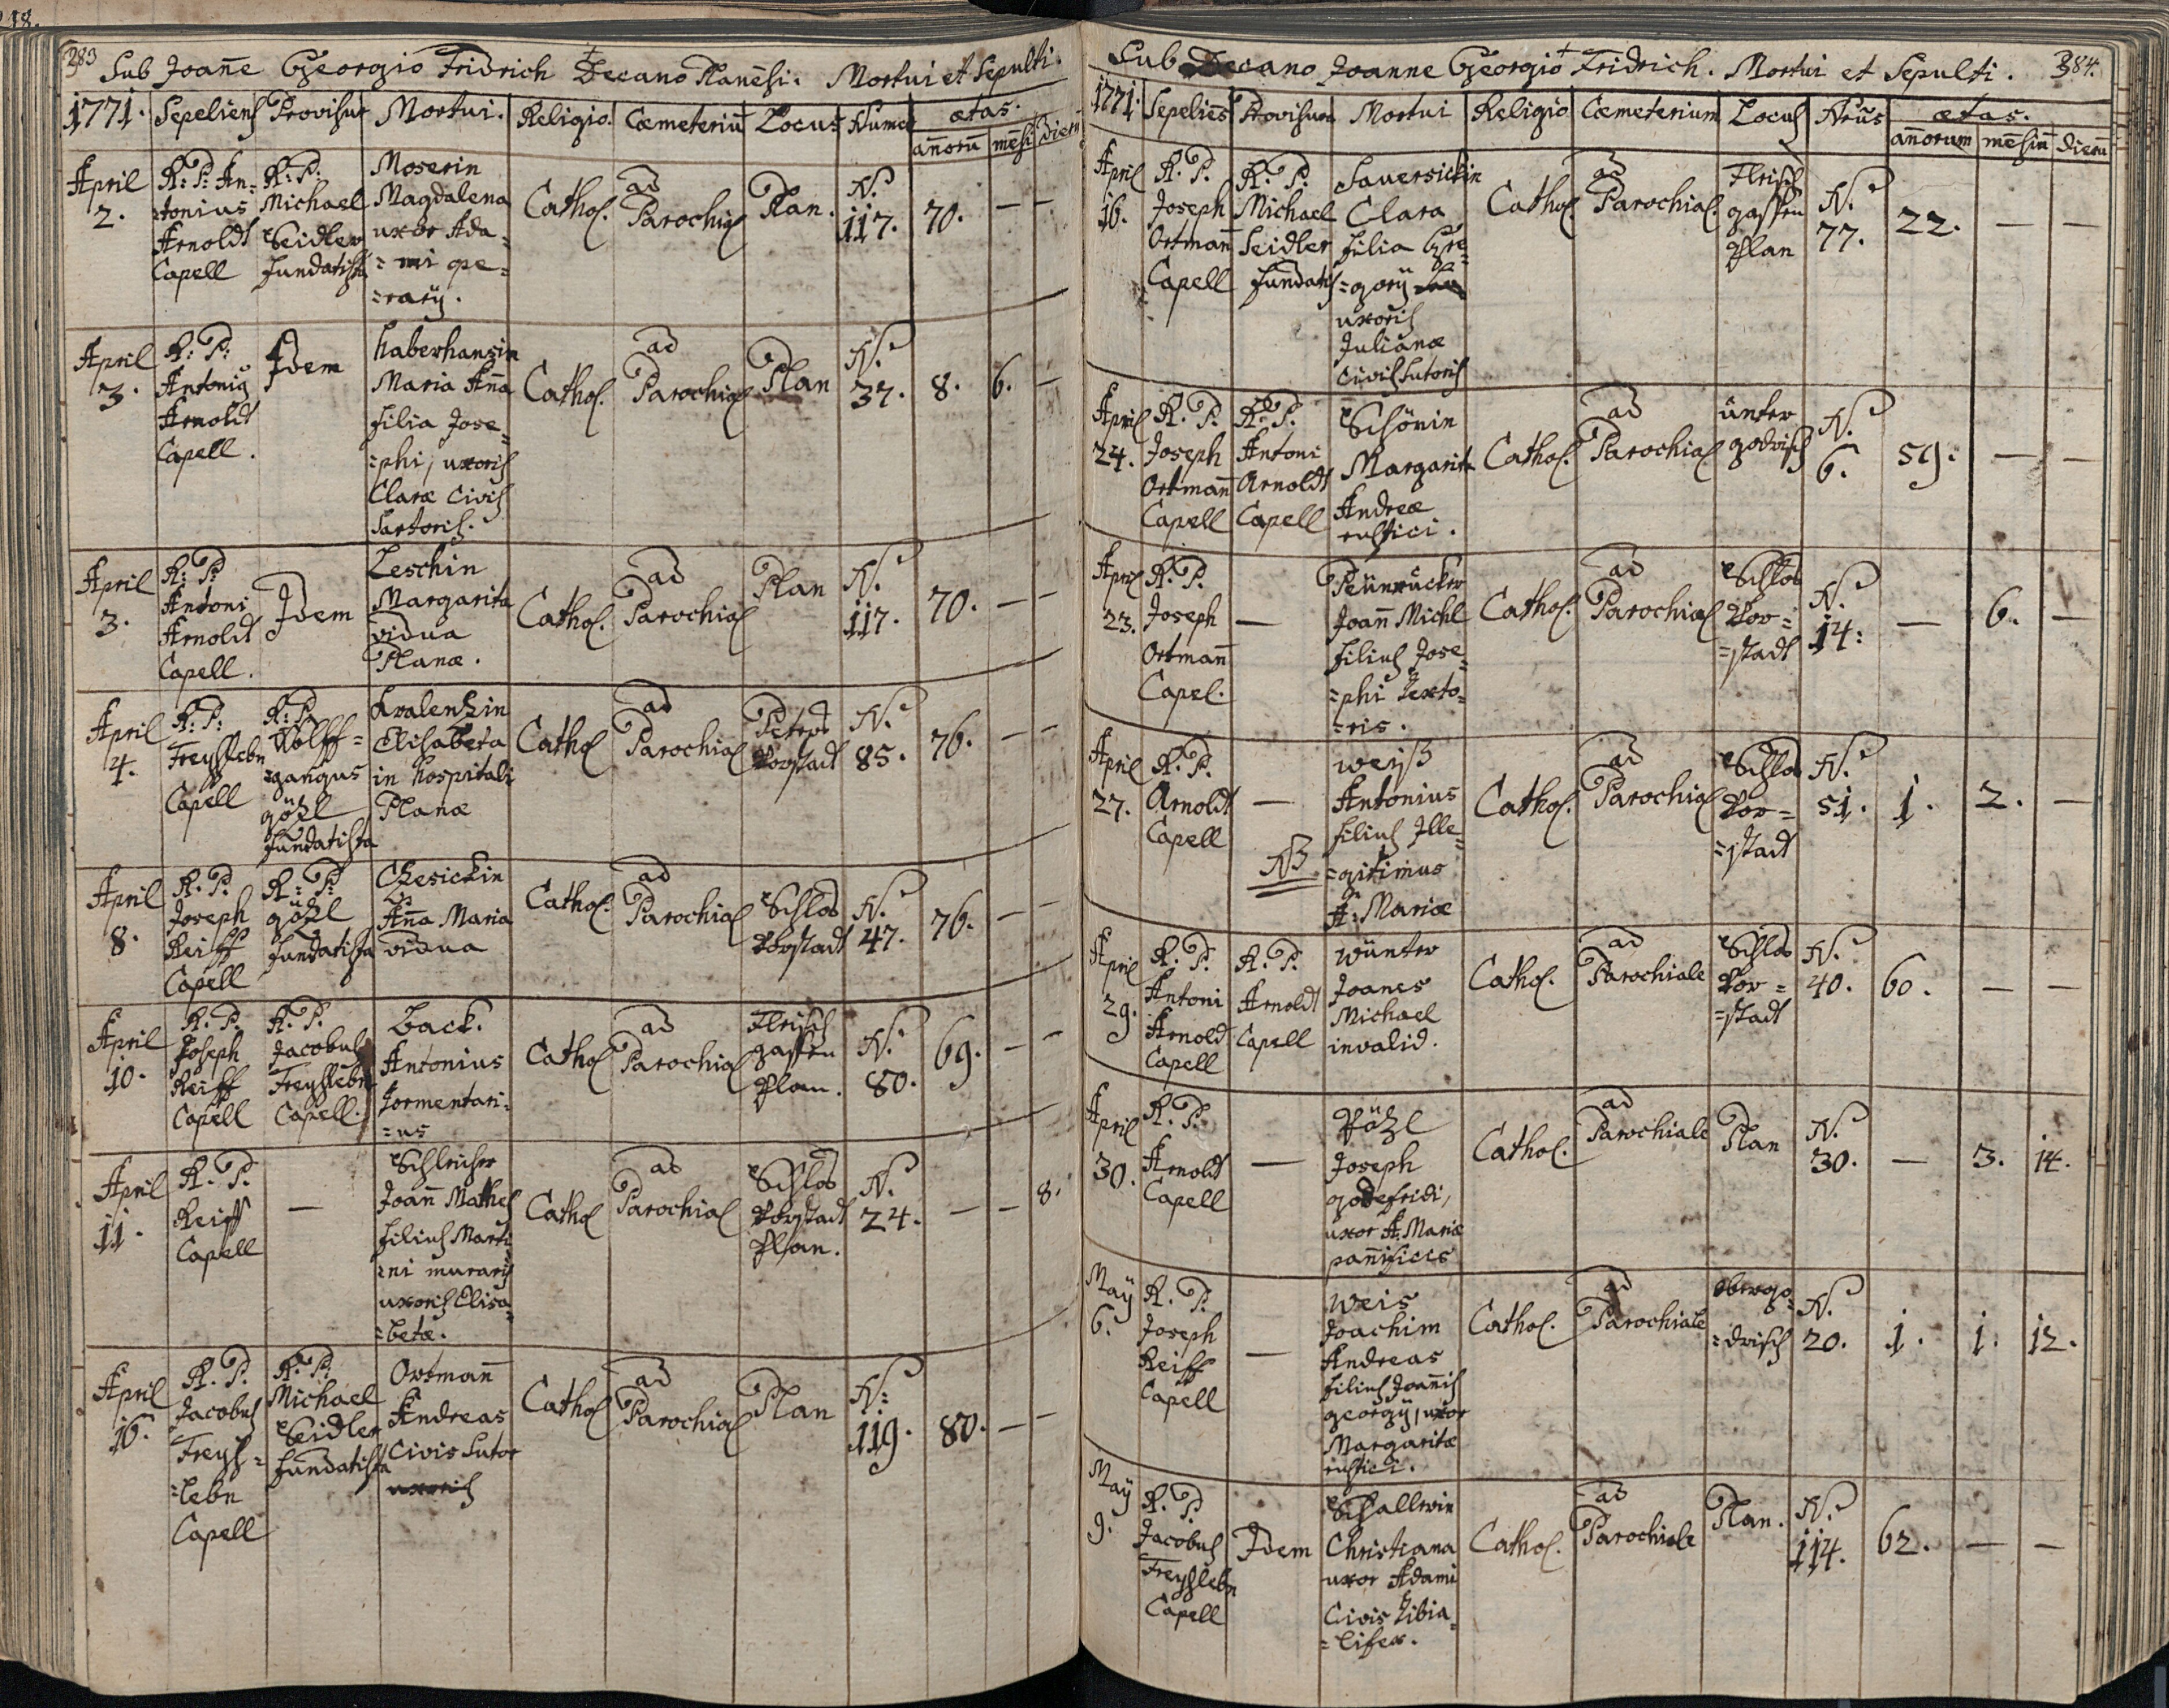 218.
283
Sub Joane Georgio Fridrich Decano Planesi. Mortui et Sepulti.
1771. Sepeliens Provisus Mortui. Religio. Cæmeteriu Locus Nume ætas.
añorũ mẽsi dierũ
April
2.
R: P: An-
tonius
Arnoldt
Capell
R: P:
Michael
Seidler
fundatista
Moserin
Magdalena
uxor Ada-
=mi ope-
=rarÿ.
Cathol.
ad
Parochial
Plan.
N.
117.
70. — —
April
3.
R: P:
Antoniy
Arnoldt
Capell.
Idem
Haberhansin
Maria Aña
filia Jose=
=phi, uxoris
Claræ Civis
Sartoris.
Cathol.
ad
Parochial
Plan
N.
37.
8. 6. —
April
3.
R: P:
Antoni
Arnoldt
Capell.
Idem
Leschin
Margarita
vidua
Planæ.
Cathol.
ad
Parochial
Plan
N.
117.
70. — —
April
4.
R: P:
Freyslebn
Capell
R: P.
Wolff=
=gangus
götzl
fundatista
Kralentzin
Elisabeta
in hospitali
Planæ
Cathol
ad
Parochial
Peters
Vorstadt
N.
85.
76. — —
April
8.
R. P.
Joseph
Reiff
Capell
R: P:
götzl
fundatista
Chesickin
Aña Maria
vidua
Cathol.
ad
Parochial
Schlos
Vorstadt
N.
47.
76. — —
April
10.
R. P.
Joseph
Reiff
Capell
R. P.
Jacobus
Freyslebn
Capell.
Zack.
Antonius
tormentari=
=us
Cathol
ad
Parochial
Fleisch
gassen
Plan.
N.
80.
69. — —
April
11.
R. P.
Reiff
Capell
—
Schleicher
Joañ Mathes
filius Marti
=ni murarÿ
uxoris Elisa=
=betæ.
Cathol
ad
Parochial
Schlos
Vorstadt
Plan.
N.
24.
— — 8.
April
16.
R. P.
Jacobus
Freys=
=lebn
Capell
R. P.
Michael
Seidler
fundatista
Ortmañ
Andreas
Civis Sutor
uxoris
Cathol
ad
Parochial
Plan
N:
119.
80. — —
Sub Decano Joanne Georgio Fridrich. Mortui et Sepulti. 384.
1771. Sepelies Provisus Mortui Religio Cæmeterium Locus Nrũs ætas.
añorum mẽsiũ dierũ
April
16.
R. P.
Joseph
Ortmañ
Capell
R. P.
Michael
Seidler
fundatis
Sauersickin
Clara
filia Gre=
=gorÿ
uxoris
Julianæ
Civis Sutoris
Cathol.
ad
Parochial.
Fleisch
gassen
Plan
N.
77.
22. — —
April
24.
R. P.
Joseph
Ortmañ
Capell
R. P.
Antoni
Arnoldt
Capell
Schönin
Margarita
Andreæ
rustici.
Cathol.
ad
Parochial
unter
godrisch
N.
6.
59. — —
April
23.
R. P.
Joseph
Ortmañ
Capel.
—
Joañ Michl
filius Jose=
=phi Texto=
=ris.
Cathol.
ad
Parochial
Schlos
Vor=
=stadt
N.
14.
— 6. —
April
27.
R. P.
Arnoldt
Capell
—
NB
weisß
Antonius
filius Ille=
=gitimus
A: Mariæ
Cathol.
ad
Parochial
Schlos
Vor=
=stadt
N.
51.
1. 2. —
April
29.
R. P.
Antoni
Arnold
Capell
R. P.
Arnoldt
Capell
wünter
Joanes
Michael
invalid.
Cathol.
ad
Parochiale
Schlos
Vor=
=stadt
N.
40.
60. — —
April
30.
R. P.
Arnoldt
Capell
—
Pötzl
Joseph
godefridi,
uxor A: Mariæ
pañificis
Cathol.
ad
Parochiale
Plan
N.
30.
— 3. 14.
May
6.
R. P.
Joseph
Reiff
Capell
—
Weis
Joachim
Andreas
filius Joañis
georgÿ, uxor
Margaritæ
rustici.
Cathol.
ad
Parochiale
obergo=
=drisch
N.
20.
1. 1. 12.
May
9.
R. P.
Jacobus
Freyslebn
Capell
Idem
Schallerin
Christiana
uxor Adami
Civis tibia=
=lifex.
Cathol.
ad
Parochiale
Plan.
N.
114.
62. — —